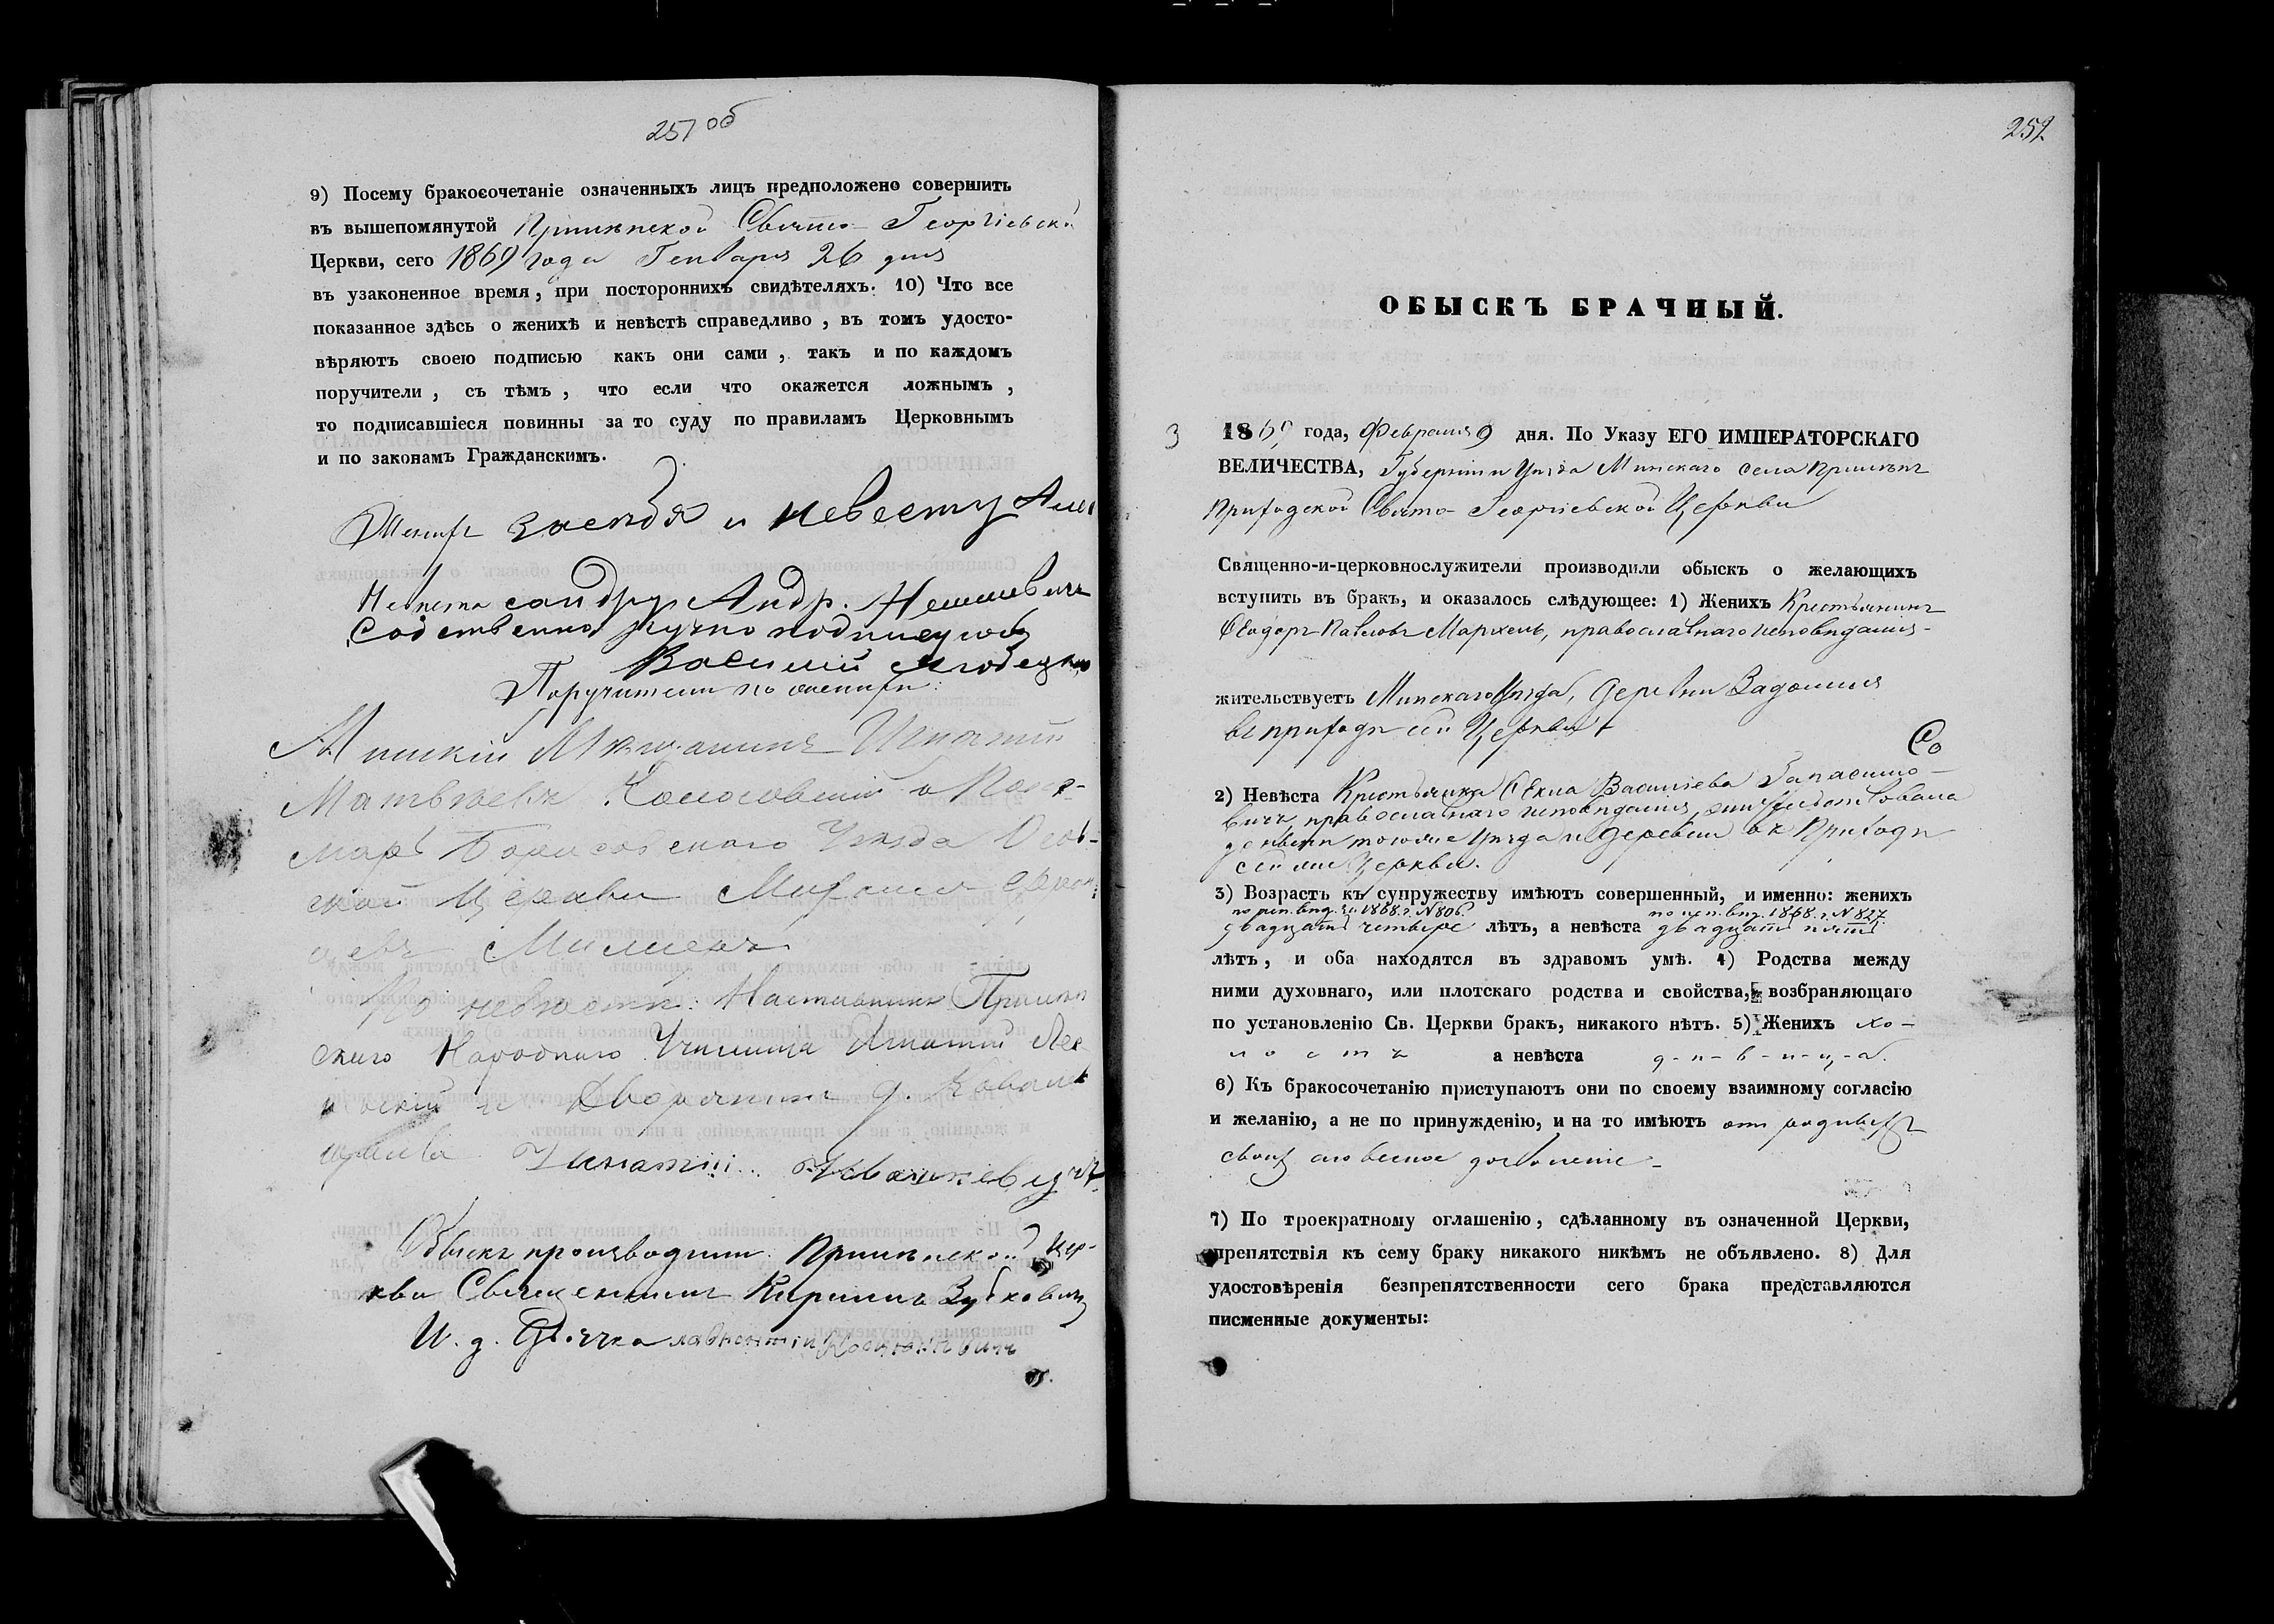 257 об
9) Посему бракосочетаніе означенныхъ лицъ предположено совершить
въ вышепомянутой Прилѣпской Свято-Георгіевской
Церкви, сего 1869 года Генваря 26 дня
въ узаконенное время, при постороннихъ свидѣтеляхъ. 10) Что все
показанное здѣсь о женихѣ и невѣстѣ справедливо, въ томъ удосто-
вѣряютъ своею подписью какъ они сами, такъ и по каждомъ
поручители, съ тѣмъ, что если что окажется ложнымъ,
то подписавшіеся повинны за то суду по правиламъ Церковнымъ
и по законамъ Гражданскимъ.
Женихъ за себя и невесту
Невѣста Андр.
Собственно ручно
Василій
Поручители по женихѣ:
Минскій Мѣщанинъ Игнатій
Матвѣевъ и
Борисовскаго Уѣзда
Церкви
По невѣстѣ: Наставникъ Прилѣп
скаго Народнаго Училища Игнатій
и Дворянинъ
Игнатій
Обыскъ производили: Прилѣпской Цер-
кви Священникъ Кириллъ Зубковичъ
И. д. Дьячка Лаврентій
252
ОБЫСКЪ БРАЧНЫЙ.
3 1869 года, Февраля 9 дня. По Указу ЕГО ИМПЕРАТОРСКАГО
ВЕЛИЧЕСТВА, Губерніи и Уѣзда Минскаго села Прилѣпъ
Приходской Свято-Георгіевской Церкви
Священно-и-церковнослужители производили обыскъ о желающихъ
вступить въ бракъ, и оказалось слѣдующее: 1) Женихъ Крестьянинъ
Ѳеодоръ Павловъ Мархель, православнаго исповѣданія-
жительствуетъ Минскаго Уѣзда, деревни Задомля
въ приходѣ сей Церкви
2) Невѣста Крестьянка Ѳекла Васильева
вичъ, православнаго исповѣданія, жительствовала
до нынѣ того же Уѣзда и деревни въ Приходѣ
сей же Церкви.
3) Возрастъ къ супружеству имѣютъ совершенный, и именно: женихъ
по исп. вѣд. за 1868 г. № 806. по исп. вѣд. 1868 г. № 827.
двадцать четыре лѣтъ, а невѣста двадцать пять
лѣтъ, и оба находятся въ здравомъ умѣ. 4) Родства между
ними духовнаго, или плотскаго родства и свойства, возбраняющаго
по установленію Св. Церкви бракъ, никакого нѣтъ. 5) Женихъ хо-
лостъ а невѣста д-ѣ-в-и-ц-а.
6) Къ бракосочетанію приступаютъ они по своему взаимному согласію
и желанію, а не по принужденію, и на то имѣютъ отъ родныхъ
своихъ словесное дозволеніе-
7) По троекратному оглашенію, сдѣланному въ означенной Церкви,
препятствія къ сему браку никакого никѣмъ не объявлено. 8) Для
удостовѣренія безпрепятственности сего брака представляются
писменные документы: